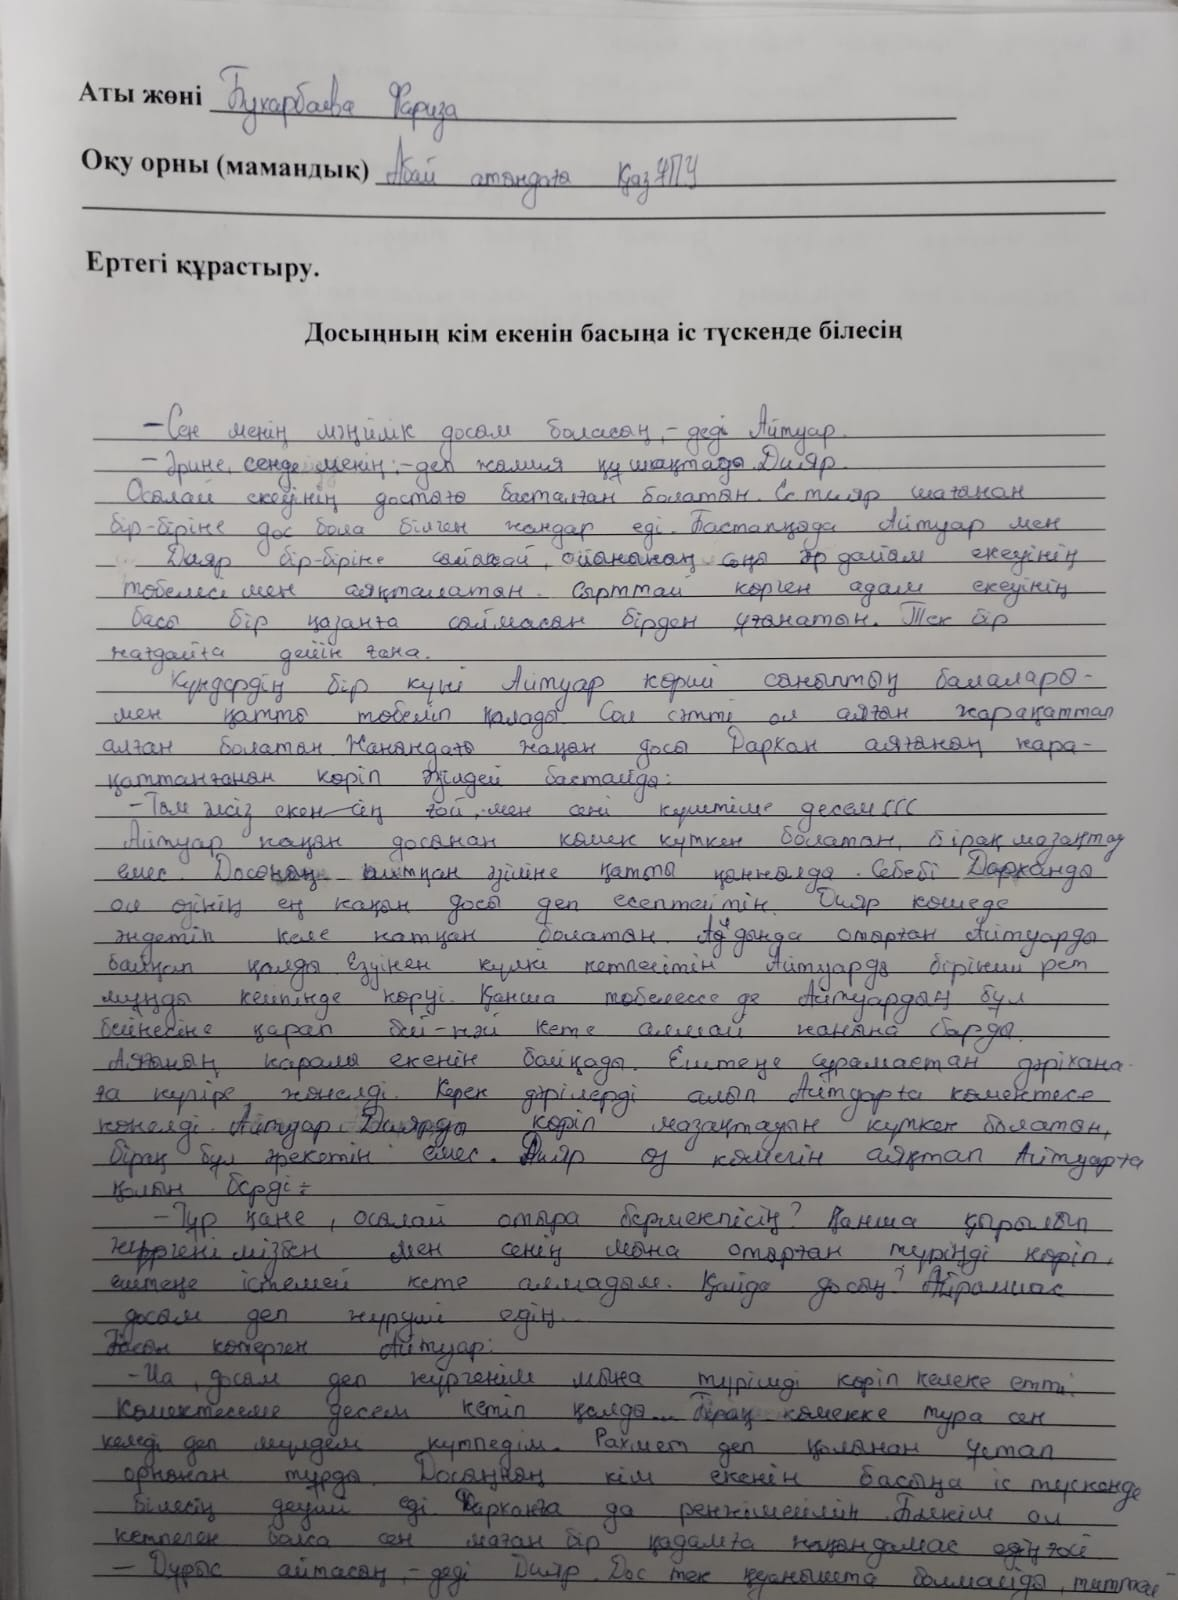 Аты жөні Бухарбаева Фариза
Оқу орны (мамандық) Абай атындағы ҚазҰПУ
Ертегі құрастыру.
Досыңның кім екенін басыңа іс түскенде білесің
– Сен менің мәңгілік досым боласың, – деді Айтуар.
– Әрине, сенде менің, – деп жымия құшақтады Дияр.
Осылай екеуінің достығы басталған болатын.
бір-біріне дос бола білген жандар еді. Бастапқыда Айтуар мен
Дияр бір-біріне соңы әрдайым екеуінің
төбелесімен аяқталатын. Сырттай көрген адам екеуінің
басы бір қазанға сыймасын бірден ұғанатын. Тек бір
жағдайға дейін ғана.
Күндердің бір күні Айтуар көрші сыныптың балалары-
мен қатты төбелесіп қалады. Сол сәтті ол аяғын жарақаттап
алған болатын. Жанындағы жақын досы Дархан аяғының жара-
қаттанғанын көріп әзілдей бастайды:
– Там әлсіз екенсің ғой, мен сені күштіме десем(((
Айтуар жақын досынан көмек күткен болатын, бірақ мазақтау
емес. Досының айтқан әзіліне қатты қынжылды. Себебі Дарханды
ол өзінің ең жақын досы деп есептейтін. Дияр көшеде
әндетіп келе жатқан болатын. Алдында отырған Айтуарды
байқап қалды. Езуінен күлкі кетпейтін Айтуарды бірінші рет
мұңды кейіпінде көруі. Қанша төбелессе де Айтуардың бұл
бейнесіне қарап бей-жәй кете алмай жанына барды.
Аяғының жаралы екенін байқады. Ештеңе сұрамастан дәріхана-
ға жүгіре жөнелді. Керек дәрілерді алып Айтуарға көмектесе
жөнелді. Айтуар Диярды көріп мазақтауын күткен болатын,
бірақ бұл әрекетін емес. Дияр өз көмегін аяқтап Айтуарға
қолын берді:
– Тұр қане, осылай отыра бермекпісің? Қанша қырылып
жүргенімізбен мен сенің мына отырған түріңді көріп,
ештеңе істемей кете алмадым. Қайда досың? Айрылмас
досым деп жүруші едің...
Басын көтерген Айтуар:
– Иа, досым деп жүргенім мына түрімді көріп келеке етті.
Көмектесеме десем кетіп қалды... Бірақ көмекке тура сен
келеді деп мүлдем күтпедім. Рахмет деп қолынан ұстап
орнынан тұрды. Досыңның кім екенін басыңа іс түскенде
білесің деуші еді. Дарханға да ренжімеймін. Бәлкім ол
кетпеген болса сен маған бір қадамға жақындамас едің ғой
– Дұрыс айтасың, – деді Дияр. Дос тек қуанышта болмайды,